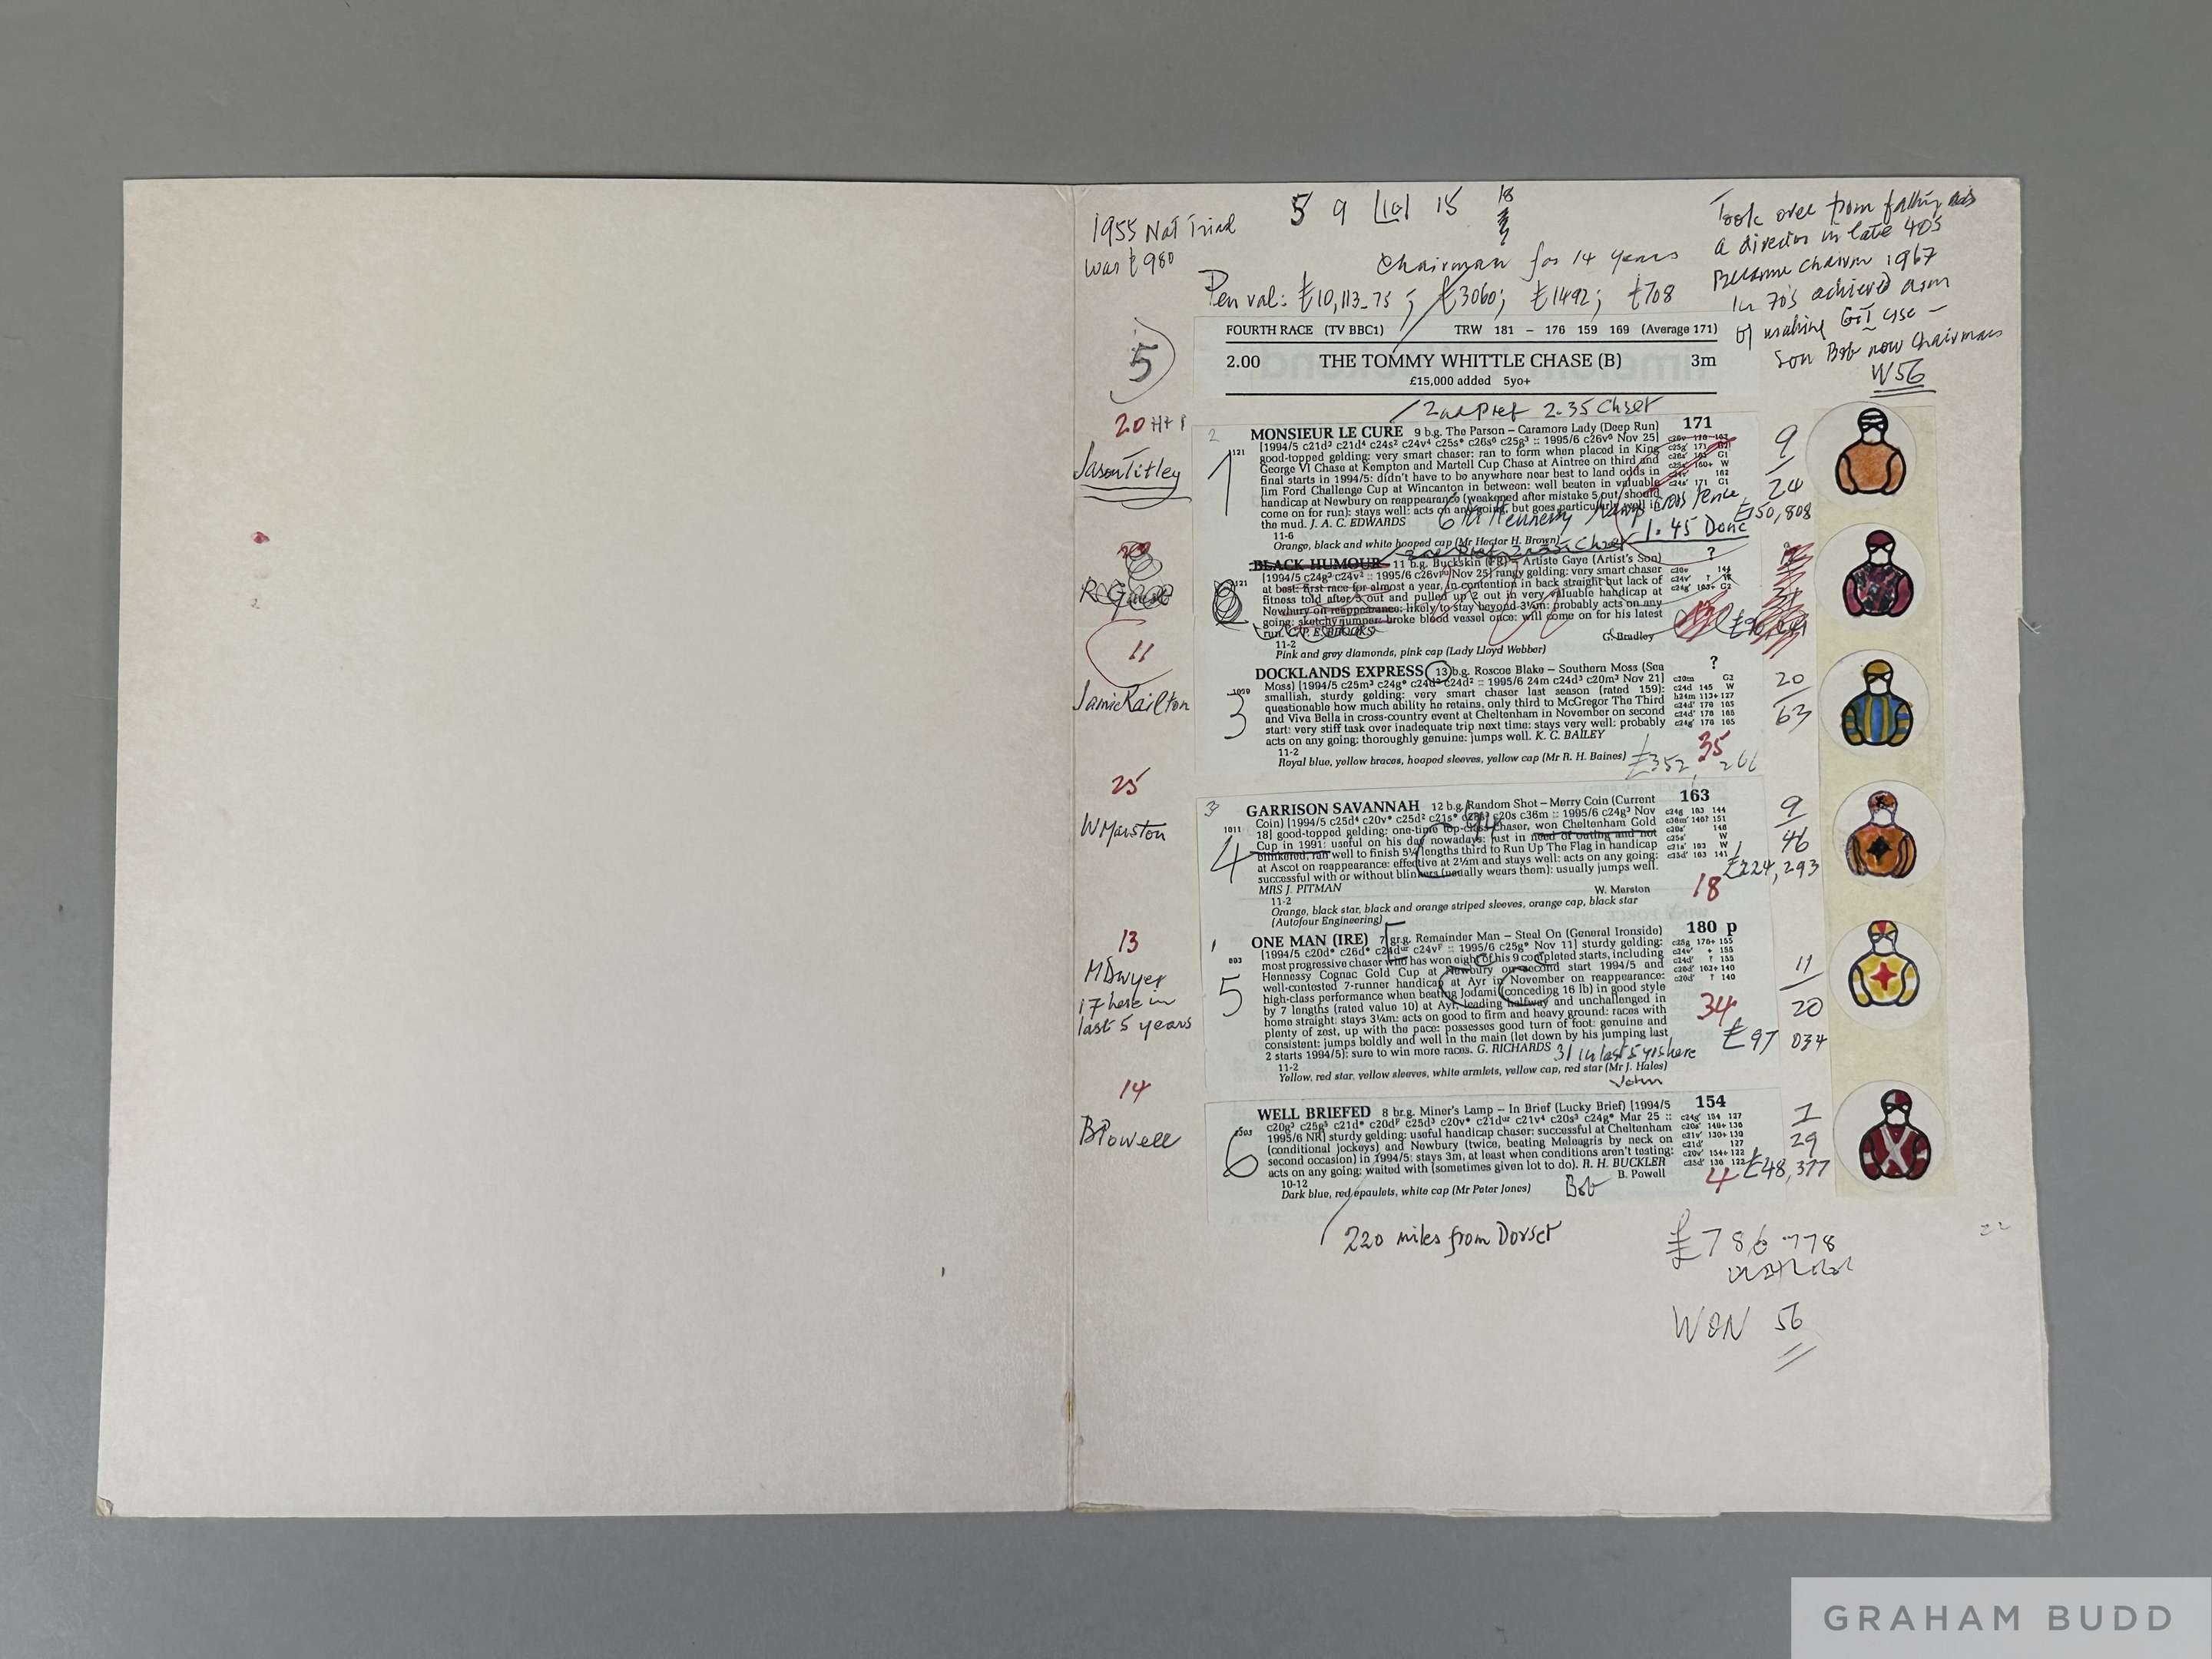 5 9 10 15 18
1955 Nat Trial
was £980
Chairman for 14 years
Pen val: £10,113-75; £3060; £1492; £708
Took over from
a director in late 40s
Became chairm 1967
In 70's achieved aim
of making
Son Bob now Chairman
W56
5
FOURTH RACE (TV BBC1) TRW 181 – 176 159 169 (Average 171)
2.00 THE TOMMY WHITTLE CHASE (B) 3m
£15,000 added 5yo+
2nd Pref 2.35 Chset
20
Jason Titley
2
1121
1
MONSIEUR LE CURE 9 b.g. The Parson – Caramore Lady (Deep Run) 171
[1994/5 c21d³ c21d⁴ c24s² c24v⁴ c25s* c26s⁶ c25g³ :: 1995/6 c26v⁶ Nov 25]
good-topped gelding: very smart chaser: ran to form when placed in King
George VI Chase at Kempton and Martell Cup Chase at Aintree on third and
final starts in 1994/5: didn't have to be anywhere near best to land odds in
Jim Ford Challenge Cup at Wincanton in between: well beaten in valuable
handicap at Newbury on reappearance (weakened after mistake 5 out, should
come on for run): stays well: acts on any going, but goes particularly well in
the mud. J. A. C. EDWARDS
6th Hennessy
1.45 Donc
11-6
Orange, black and white hooped cap (Mr Hector H. Brown)
9
24
£150,808
BLACK HUMOUR 11 b.g. Buckskin (FR) – Artiste Gaye (Artist's Son) ?
[1994/5 c24g³ c24v² :: 1995/6 c26vᵖᵘ Nov 25] rangy gelding: very smart chaser
at best: first race for almost a year, in contention in back straight but lack of
fitness told after 3 out and pulled up 2 out in very valuable handicap at
Newbury on reappearance: likely to stay beyond 3¼m: probably acts on any
going: sketchy jumper: broke blood vessel once: will come on for his latest
run.
G. Bradley
11-2
Pink and grey diamonds, pink cap (Lady Lloyd Webber)
11
Jamie Railton
3
DOCKLANDS EXPRESS 13 b.g. Roscoe Blake – Southern Moss (Sea ?
Moss) [1994/5 c25m³ c24g* c24d³ c24d² :: 1995/6 24m c24d³ c20m³ Nov 21]
smallish, sturdy gelding: very smart chaser last season (rated 159):
questionable how much ability he retains, only third to McGregor The Third
and Viva Bella in cross-country event at Cheltenham in November on second
start: very stiff task over inadequate trip next time: stays very well: probably
acts on any going: thoroughly genuine: jumps well. K. C. BAILEY
11-2
Royal blue, yellow braces, hooped sleeves, yellow cap (Mr R. H. Baines)
35
£352,266
20
63
25
W Marston
3
1011
4
GARRISON SAVANNAH 12 b.g. Random Shot – Merry Coin (Current 163
Coin) [1994/5 c25d⁴ c20v* c25d² c21s* c20s c36m :: 1995/6 c24g³ Nov
18] good-topped gelding: one-time top-class chaser, won Cheltenham Gold
Cup in 1991: useful on his day nowadays: just in need of outing and not
blinkered, ran well to finish 5¼ lengths third to Run Up The Flag in handicap
at Ascot on reappearance: effective at 2½m and stays well: acts on any going:
successful with or without blinkers (usually wears them): usually jumps well.
MRS J. PITMAN W. Marston
11-2
Orange, black star, black and orange striped sleeves, orange cap, black star
(Autofour Engineering)
18
9
46
£224,293
13
M Dwyer
17 here in
last 5 years
1
5
ONE MAN (IRE) 7 gr.g. Remainder Man – Steal On (General Ironside) 180 p
[1994/5 c20d* c26d* c24dᵘʳ c24vF :: 1995/6 c25g* Nov 11] sturdy gelding:
most progressive chaser who has won eight of his 9 completed starts, including
Hennessy Cognac Gold Cup at Newbury on second start 1994/5 and
well-contested 7-runner handicap at Ayr in November on reappearance:
high-class performance when beating Jodami (conceding 16 lb) in good style
by 7 lengths (rated value 10) at Ayr, leading halfway and unchallenged in
home straight: stays 3¼m: acts on good to firm and heavy ground: races with
plenty of zest, up with the pace: possesses good turn of foot: genuine and
consistent: jumps boldly and well in the main (let down by his jumping last
2 starts 1994/5): sure to win more races. G. RICHARDS 31 in last 5 yrs here
11-2
Yellow, red star, yellow sleeves, white armlets, yellow cap, red star (Mr J. Hales)
John
34
11
20
£97 034
14
B Powell
6
WELL BRIEFED 8 br.g. Miner's Lamp – In Brief (Lucky Brief) [1994/5 154
c20g³ c25g⁵ c21d* c20dF c25d³ c20v* c21dᵘʳ c21v⁴ c20s³ c24g* Mar 25 ::
1995/6 NR] sturdy gelding: useful handicap chaser: successful at Cheltenham
(conditional jockeys) and Newbury (twice, beating Meleagris by neck on
second occasion) in 1994/5: stays 3m, at least when conditions aren't testing:
acts on any going: waited with (sometimes given lot to do). R. H. BUCKLER
B. Powell
10-12
Dark blue, red epaulets, white cap (Mr Peter Jones)
Bob
4
7
29
£48,377
220 miles from Dorset
£786 778
WON 56
GRAHAM BUDD